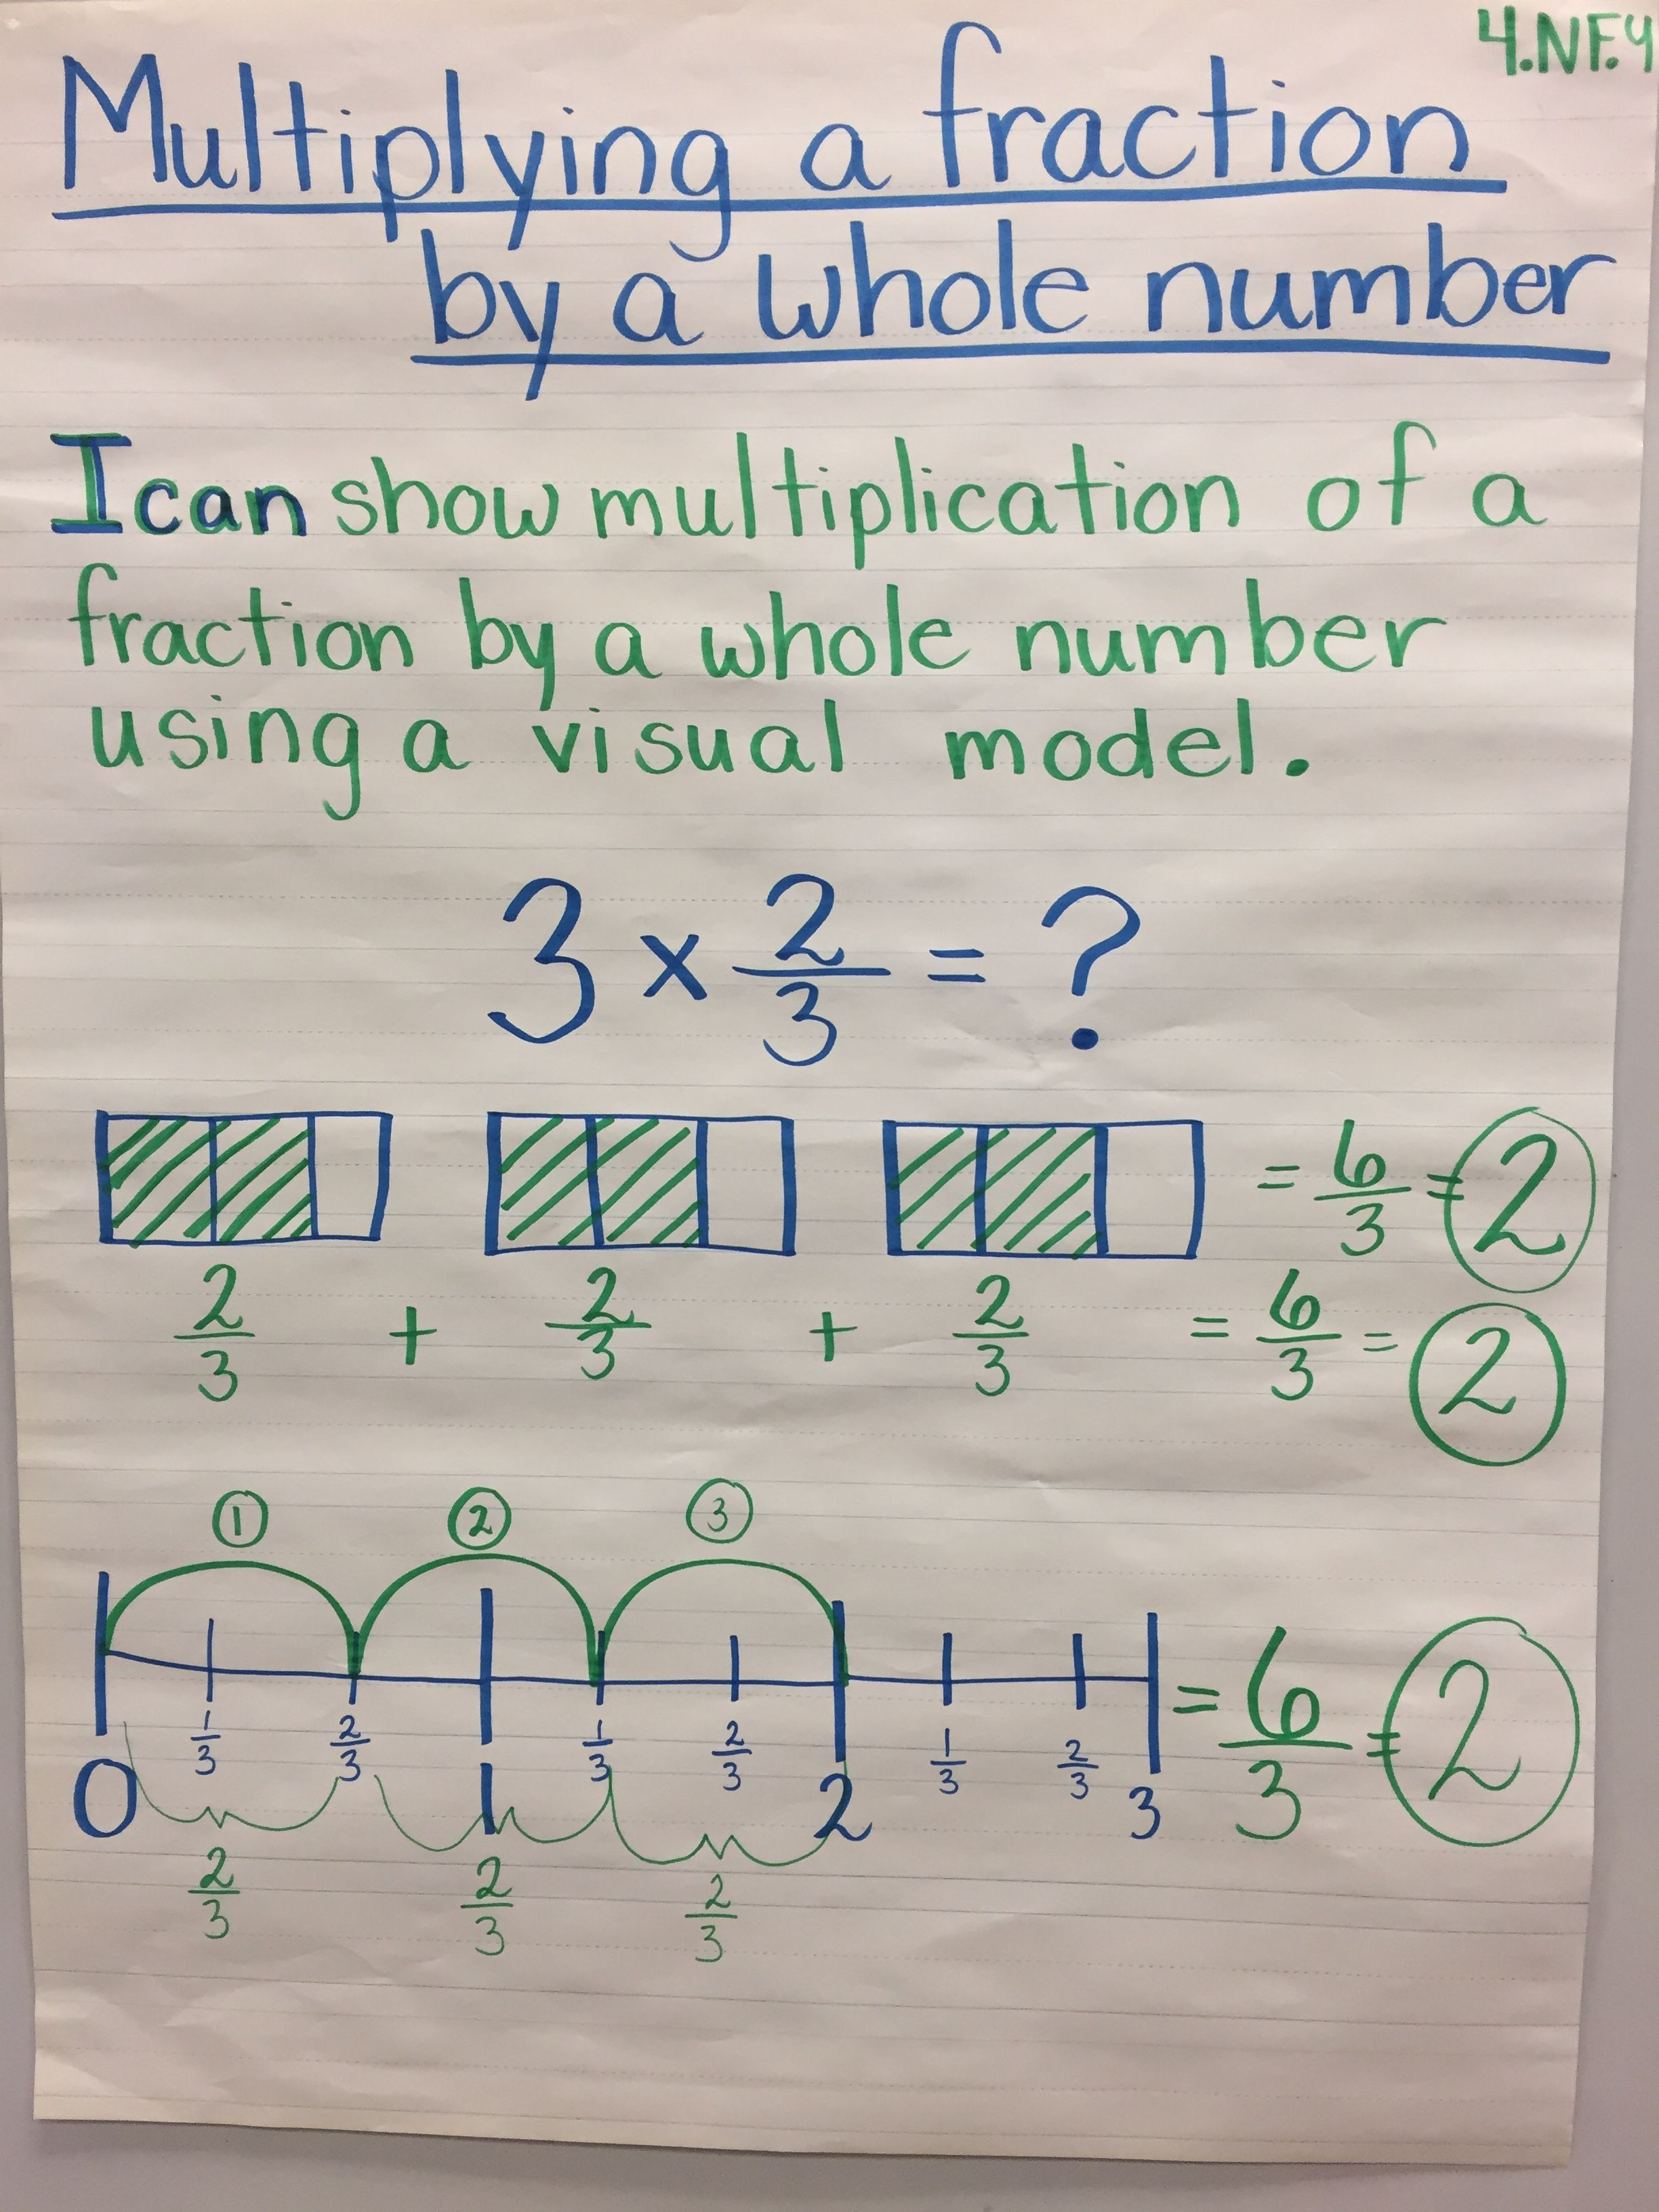 4.NF.4
Multiplying a fraction
by a whole number
I can show multiplication of a
fraction by a whole number
using a visual model.
3 x 2/3 = ?
= 6/3 = 2
2/3 + 2/3 + 2/3 = 6/3 = 2
1 2 3
1/3 2/3 1/3 2/3 1/3 2/3 = 6/3 = 2
0 1 2 3
2/3 2/3 2/3